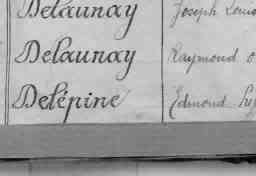 Delaunay Joseph Louis
Delaunay Raymond
Delépine Edmond